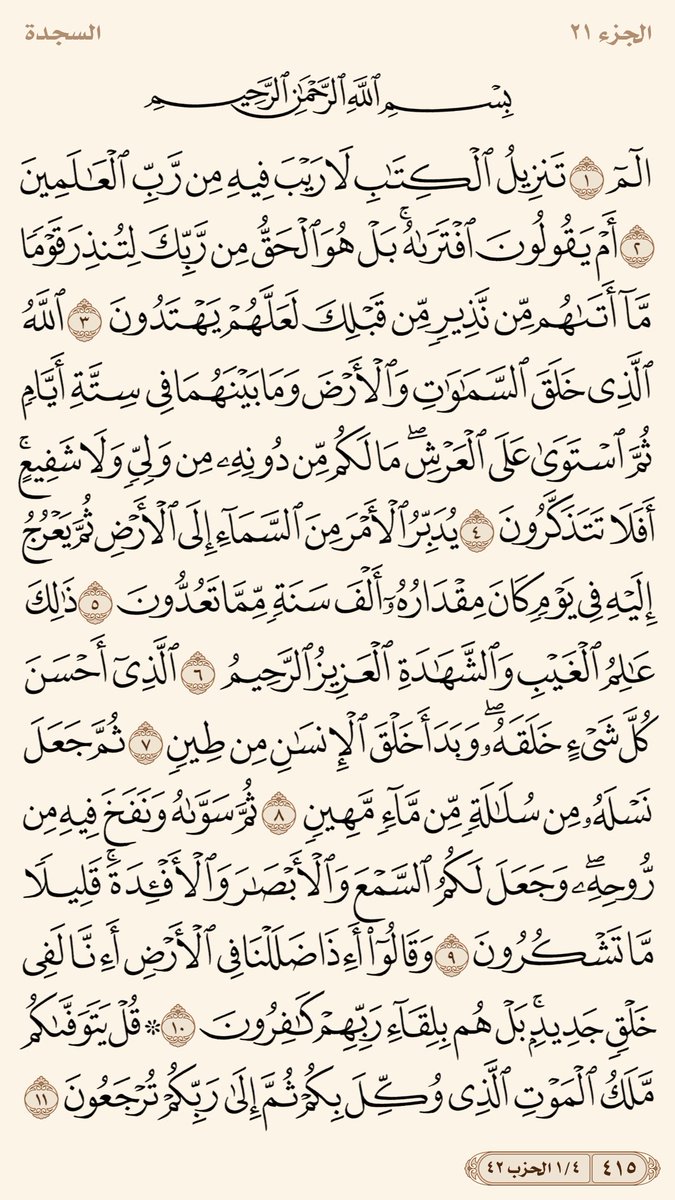 الجزء ٢١ السجدة
بِسْمِ ٱللَّهِ ٱلرَّحْمَٰنِ ٱلرَّحِيمِ
الٓمٓ ١ تَنزِيلُ ٱلْكِتَٰبِ لَا رَيْبَ فِيهِ مِن رَّبِّ ٱلْعَٰلَمِينَ
٢ أَمْ يَقُولُونَ ٱفْتَرَىٰهُ ۚ بَلْ هُوَ ٱلْحَقُّ مِن رَّبِّكَ لِتُنذِرَ قَوْمًا
مَّآ أَتَىٰهُم مِّن نَّذِيرٍ مِّن قَبْلِكَ لَعَلَّهُمْ يَهْتَدُونَ ٣ ٱللَّهُ
ٱلَّذِى خَلَقَ ٱلسَّمَٰوَٰتِ وَٱلْأَرْضَ وَمَا بَيْنَهُمَا فِى سِتَّةِ أَيَّامٍ
ثُمَّ ٱسْتَوَىٰ عَلَى ٱلْعَرْشِ ۖ مَا لَكُم مِّن دُونِهِۦ مِن وَلِىٍّ وَلَا شَفِيعٍ ۚ
أَفَلَا تَتَذَكَّرُونَ ٤ يُدَبِّرُ ٱلْأَمْرَ مِنَ ٱلسَّمَآءِ إِلَى ٱلْأَرْضِ ثُمَّ يَعْرُجُ
إِلَيْهِ فِى يَوْمٍ كَانَ مِقْدَارُهُۥٓ أَلْفَ سَنَةٍ مِّمَّا تَعُدُّونَ ٥ ذَٰلِكَ
عَٰلِمُ ٱلْغَيْبِ وَٱلشَّهَٰدَةِ ٱلْعَزِيزُ ٱلرَّحِيمُ ٦ ٱلَّذِىٓ أَحْسَنَ
كُلَّ شَىْءٍ خَلَقَهُۥ ۖ وَبَدَأَ خَلْقَ ٱلْإِنسَٰنِ مِن طِينٍ ٧ ثُمَّ جَعَلَ
نَسْلَهُۥ مِن سُلَٰلَةٍ مِّن مَّآءٍ مَّهِينٍ ٨ ثُمَّ سَوَّىٰهُ وَنَفَخَ فِيهِ مِن
رُّوحِهِۦ ۖ وَجَعَلَ لَكُمُ ٱلسَّمْعَ وَٱلْأَبْصَٰرَ وَٱلْأَفْـِٔدَةَ ۚ قَلِيلًا
مَّا تَشْكُرُونَ ٩ وَقَالُوٓا۟ أَءِذَا ضَلَلْنَا فِى ٱلْأَرْضِ أَءِنَّا لَفِى
خَلْقٍ جَدِيدٍۭ ۚ بَلْ هُم بِلِقَآءِ رَبِّهِمْ كَٰفِرُونَ ١٠ ۞ قُلْ يَتَوَفَّىٰكُم
مَّلَكُ ٱلْمَوْتِ ٱلَّذِى وُكِّلَ بِكُمْ ثُمَّ إِلَىٰ رَبِّكُمْ تُرْجَعُونَ ١١
٤١٥ ١/٤ الحزب ٤٢